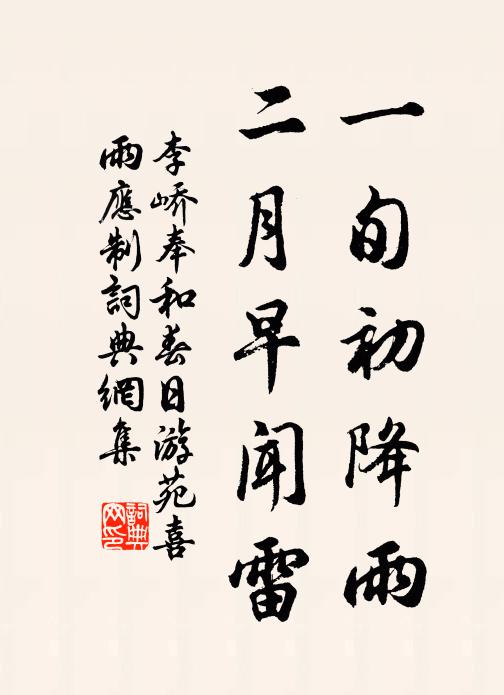 一旬初降雨
二月早闻雷
李峤奉和春日游苑喜
雨應制詞典網集
詞典
网印